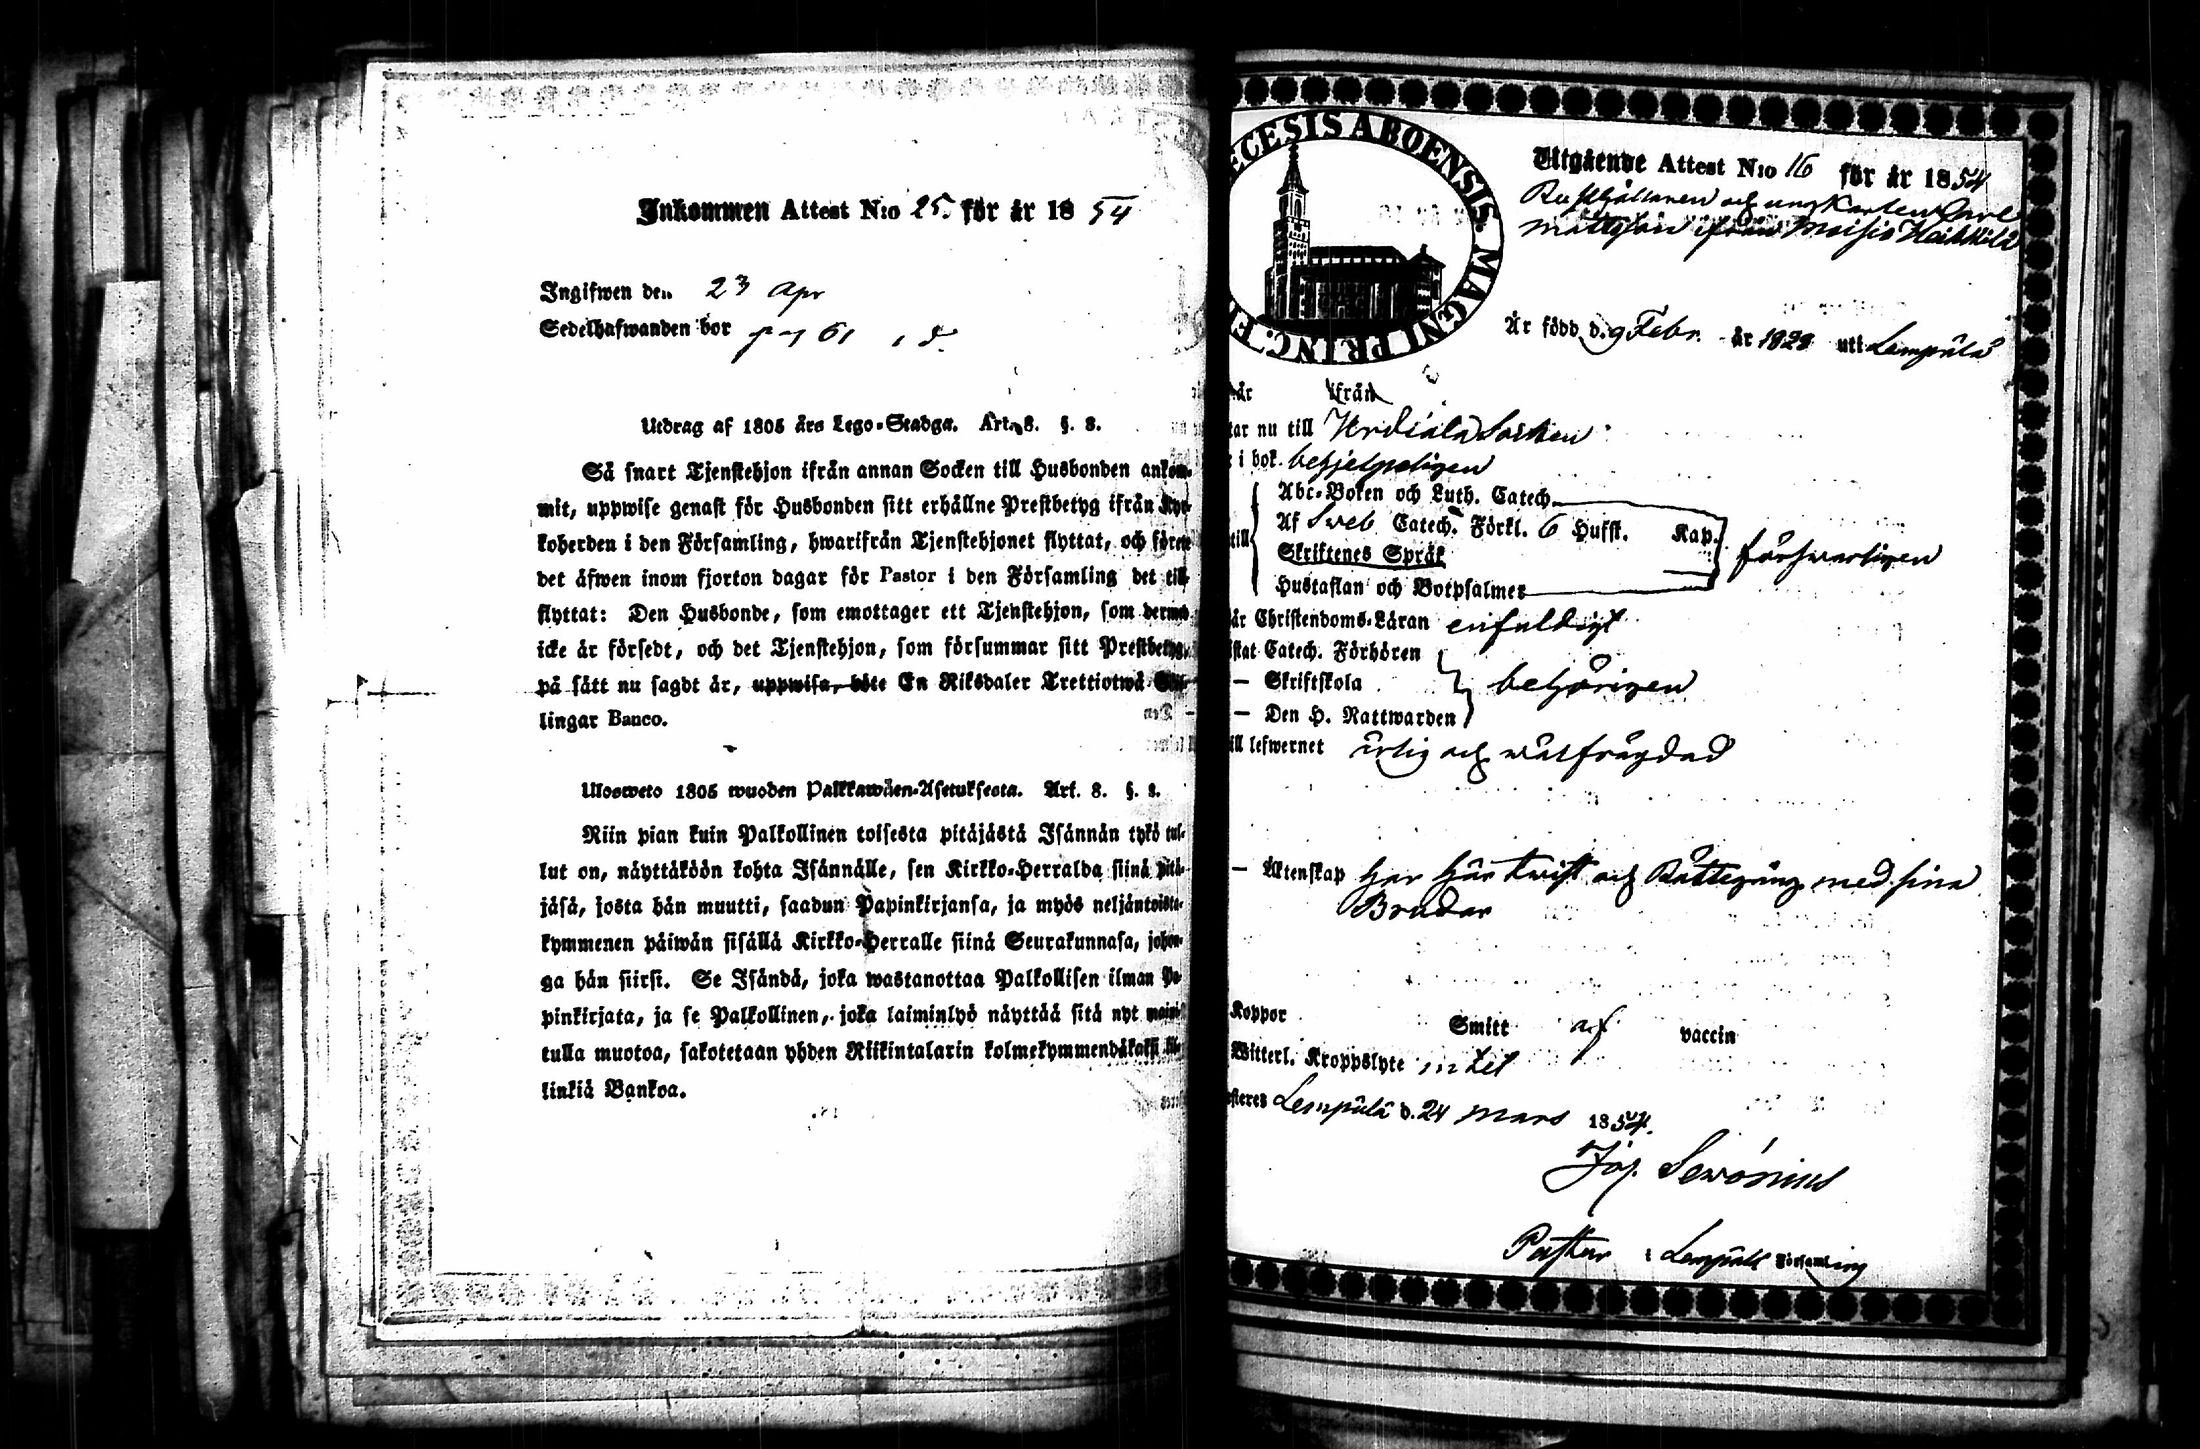 Inkommen Attest N:o 25. för år 1854
Ingifwen den 23 Apr
Sedelhafwanden bor pag 61
Utdrag af 1805 års Lego-Stadga. Art. 8. §. 8.
Så snart Tjenstehjon ifrån annan Socken till Husbonden ankom-
mit, uppwise genast för Husbonden sitt erhållne Prestbetyg ifrån Kyr-
koherden i den Församling, hwarifrån Tjenstehjonet flyttat, och förete
det äfwen inom fjorton dagar för Pastor i den Församling det till-
flyttat: Den Husbonde, som emottager ett Tjenstehjon, som dermed
icke är försedt, och det Tjenstehjon, som försummar sitt Prestbetyg,
på sätt nu sagdt är, uppwisa, böte En Riksdaler Trettiotwå Skil-
lingar Banco.
Ulosweto 1805 wuoden Palkkawäen-Asetuksesta. Art. 8. §. 8.
Niin pian kuin Palkollinen toisesta pitäjästä Isännän tykö tul-
lut on, näyttäköön kohta Isännälle, sen Kirkko-Herralda siinä pitä-
jäsä, josta hän muutti, saadun Papinkirjansa, ja myös neljäntoista-
kymmenen päiwän sisällä Kirkko-Herralle siinä Seurakunnasa, johon-
ga hän siirsi. Se Isändä, joka wastanottaa Palkollisen ilman Pa-
pinkirjata, ja se Palkollinen, joka laiminlyö näyttää sitä nyt maini-
tulla muotoa, sakotetaan yhden Riikintalarin kolmekymmendäkaksi kil-
linkiä Bankoa.
ECESIS ABOENSIS. MAGNI PRINC.
Utgående Attest N:o 16 för år 1854
Rusthållaren och ungkarlen Carl
Mattsson ifrån Moisio Heikkilä
Är född d. 9 Febr. år 1829 uti Lempälä
är ifrån
tar nu till Urdiala Socken
i bok. behjelpeligen
Abc-Boken och Luth. Catech.
till Af Sveb Catech. Förkl. 6 Hufst. Kap.
Skriftenes Språk försvarligen
Hustaflan och Botpsalmer
är Christendoms-Läran enfaldigt
istat Catech. Förhören
— Skriftskola behörigen
— Den H. Nattwarden
ill lefwernet ärlig och wälfrägdad
— Äktenskap har här twist och Rättegång med sina
Bröder
Koppor Smitt af vaccin
Witterl. Kroppslyte intet
Lempälä d. 24 Mars 1854.
Jos. Serónius
Pastor i Lempälä Församling